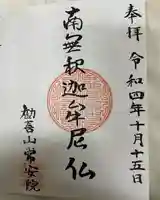 奉拝 令和四年十月十五日
南無釈迦牟尼仏
勧喜山常安院